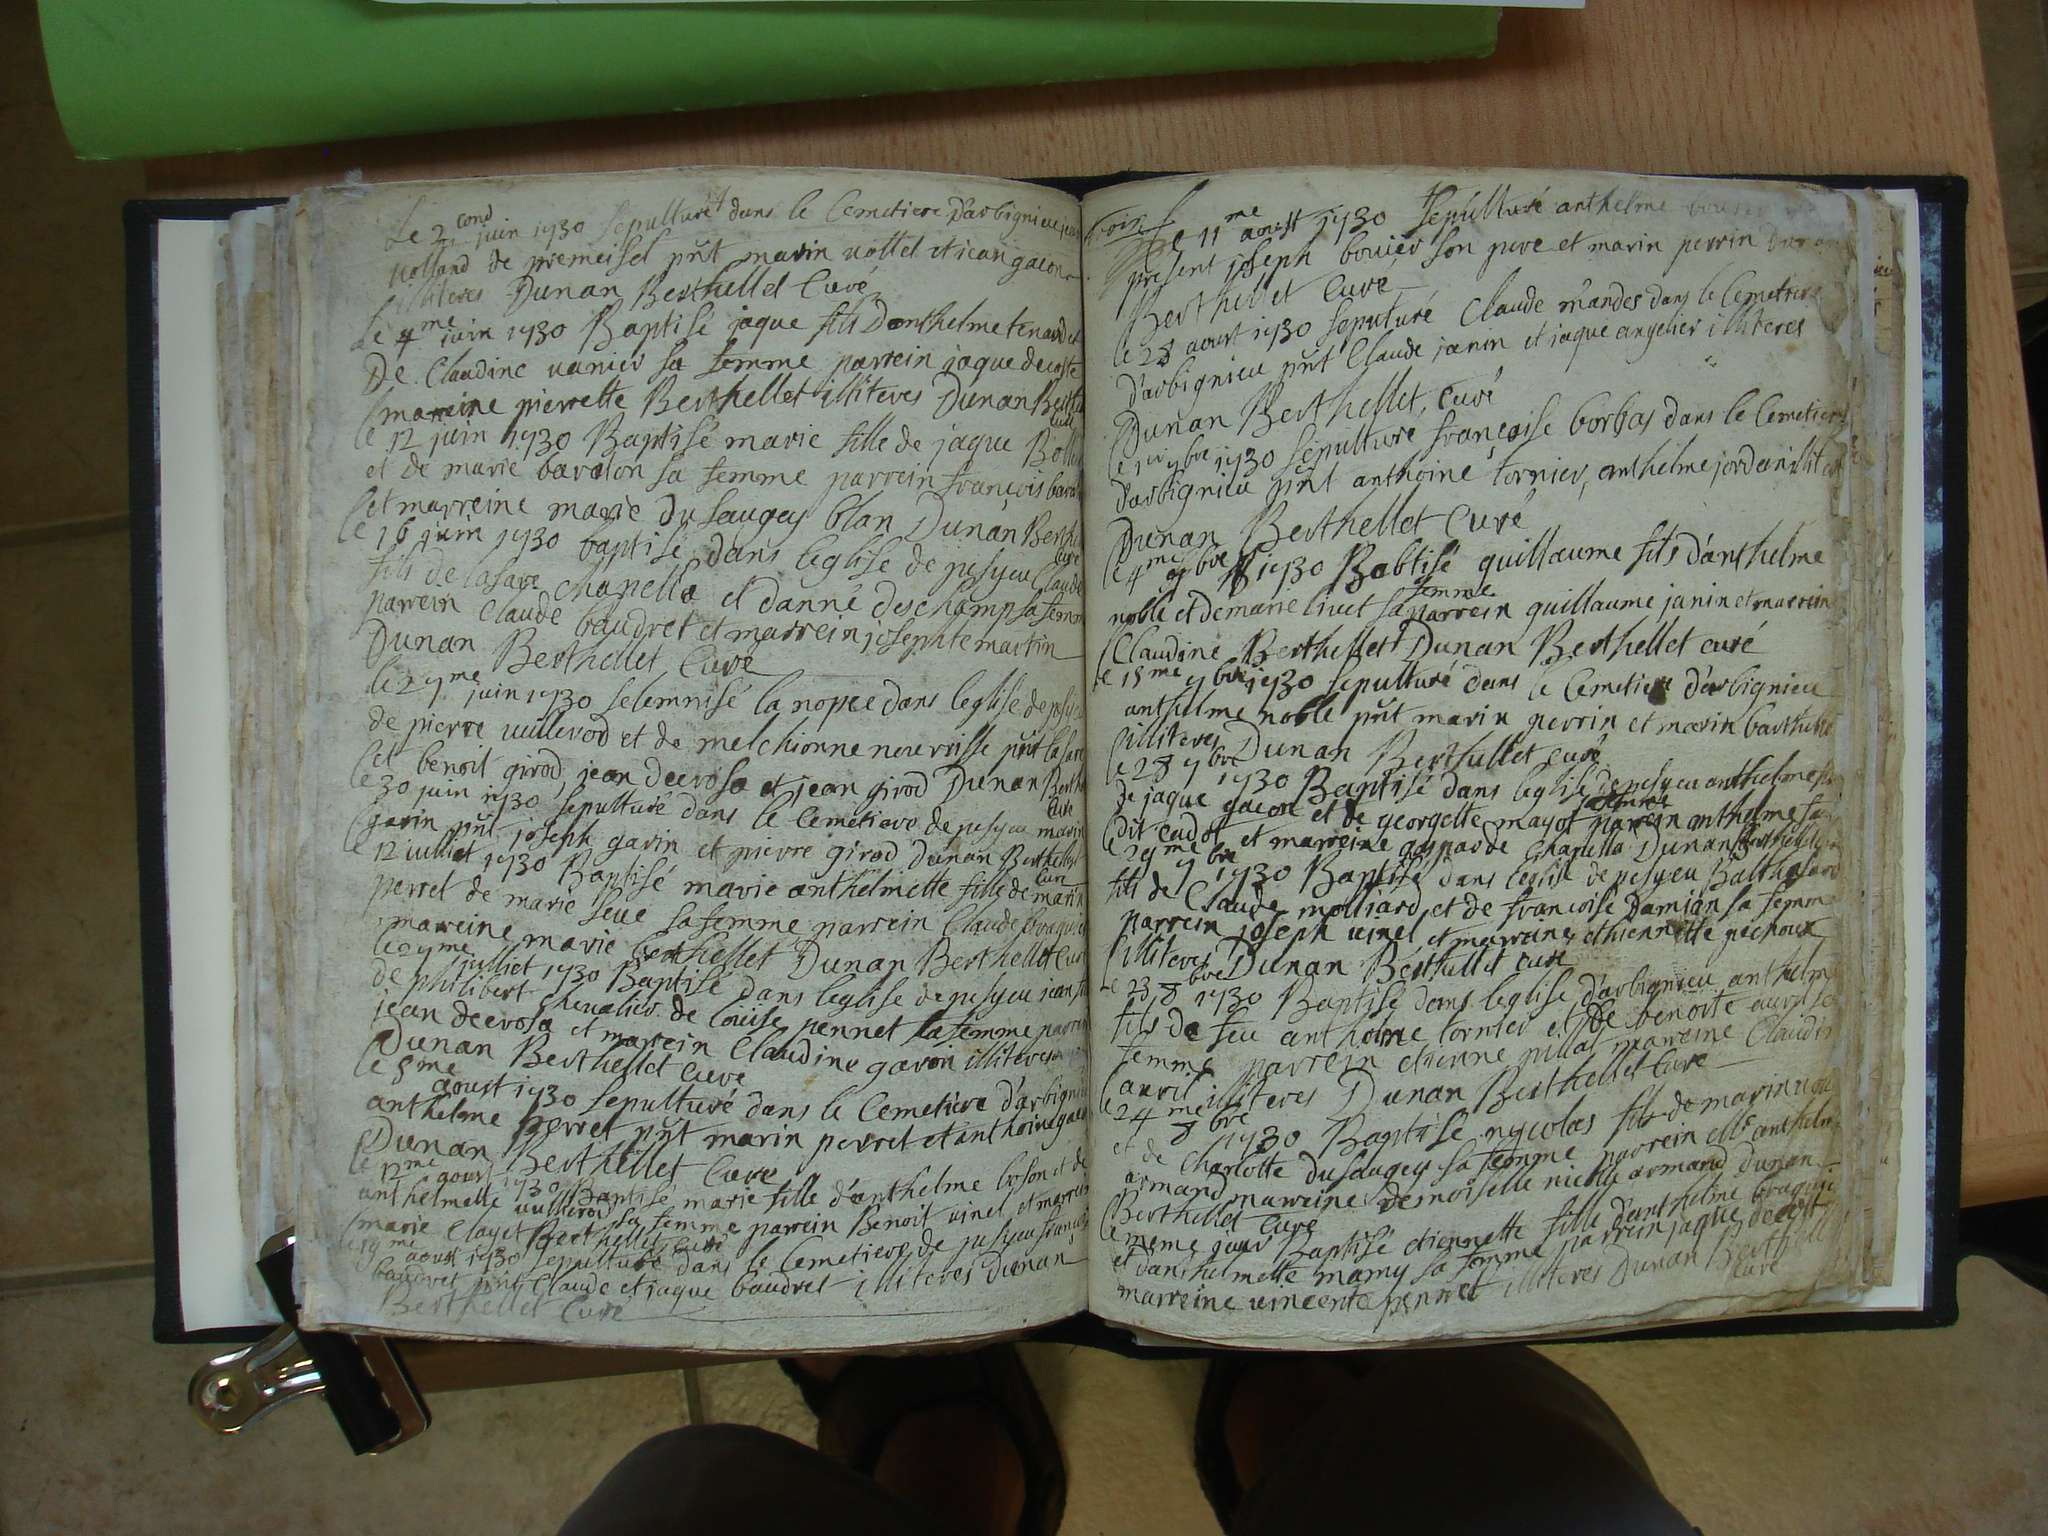 Le 2 cond juin 1730 sepulturé dans le Cemetiere Darbignieu
rolland de premeisel pñt marin vottel et jean gacon
illiteres Dunan Berthellet Curé
Le 4 me juin 1730 Baptisé jaque fils Danthelme tenard et
De Claudine vanier sa femme parrein jaque decoste
mareine pierrette Berthellet illiteres Dunan Berthe
curé
le 12 juin 1730 Baptisé marie fille de jaque
et de marie baralon sa femme parrein francois bara
et marreine marie Du saugey blan Dunan Berthe
curé
le 16 juin 1730 baptisé dans leglise de pesyeu Claude
fils de lasare chapella et danne deschamp sa femme
parrein Claude baudret et marrein josephte martin
Dunan Berthellet Curé
le 27 me juin 1730 selemnisé la nopce dans leglise de pesyeu
de pierre vullerod et de melchionne nourrisse pñt lasare
et benoit girod, jean decrosa et jean girod Dunan Berthe
Curé
le 30 juin 1730 sepulturé dans le Cemetiere de pesyeu marin
gavin pñt joseph gavin et pierre girod Dunan Berthellet
Curé
12 juilliet 1730 Baptisé marie anthelmette fille de marin
perret de marie seve sa femme parrein Claude
marreine marie berthellet Dunan Berthellet Curé
le 27 me juilliet 1730 Baptisé dans leglise de pesyeu jean
de philibert Chevalier de louise pennet sa femme parrein
jean decrosa et marrein Claudine gavin illiteres
Dunan Berthellet Cure
le 8 me aoust 1730 sepulturé dans le Cemetiere d'arbignieu
anthelme perret pñt marin perret et anthoine
Dunan Berthellet Cure
le 12 me aoust 1730 Baptisé marie fille d'anthelme et de
anthelmette vullerod sa femme parrein Benoit vinel et marrein
marie Clayet Berthellet Curé
le 19 me aoust 1730 sepulturé dans le Cemetiere de pesyeu francois
baudret pñt Claude et jaque baudret illiteres Dunan
Berthellet Curé
Le 11 me aoust 1730 sepulturé anthelme
present joseph bouier son pere et marin perrin Dunan
Berthellet Curé
le 28 aoust 1730 seputuré Claude mandes dans le Cemetiere
d'arbignieu pñt Claude janin et jaque angelier illiteres
Dunan Berthellet, curé
le 1er 7bre 1730 sepulturé françoise borbas dans le Cemetiere
darbignieu pñt anthoine tornier, anthelme jordan
Dunan Berthellet Curé
le 4 me 7bre 1730 Babtisé guillaume fils d'anthelme
femme
noble et de marie livet sa parrein guillaume janin et marreine
Claudine Berthellet Dunan Berthellet curé
le 15 me 7 bre 1730 sepulturé dans le Cemetiere d'arbignieu
anthelme noble pñt marin perrin et marin
illiteres Dunan Berthellet curé
le 28 7 bre 1730 Baptisé dans leglise de pesyeu anthelme fils
sa femme
de jaque gacon et de georgette mayot parrein anthelme
dit cadot et marreine gasparde Chapella Dunan Berthellet
le 29 me 7 bre 1730 Baptisé dans leglise de pesyeu Balthasard
fils de Claude molliard et de francoise Damian sa femme
parrein joseph vinel et marreine ethiennette pichoux
illiteres Dunan Berthellet cure
Le 23 8 bre 1730 Baptisé dans leglise d'arbignieu anthelme
fils de feu anthoine tornier et de benoite avril sa
femme parrein etienne pillat marreine Claudine
avril illiteres Dunan Berthellet Cure
le 24 me 8 bre 1730 Baptisé nycolas fils de marin
et de Charlotte dusaugey sa femme parrein anthelme
armand marreine demoiselle nicolle armand Dunan
Berthellet Cure
le meme jour Baptisé etiennette fille d'anthelme
et danthelmette mamy sa femme parrein jaque decoste
marreine vincente pennet illiteres Dunan Berthellet
Curé